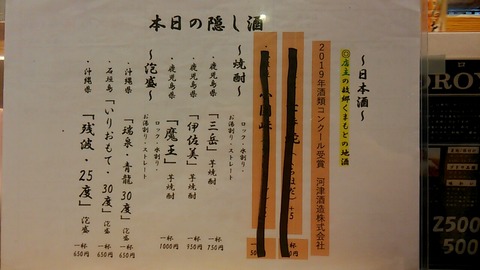 本日の隠し酒
〜日本酒〜
◎店主の故郷くまもとの地酒
2019年酒類コンクール受賞 河津酒造株式会社
〜焼酎〜
ロック・水割り・お湯割り・ストレート
・鹿児島県 「三岳」芋焼酎 一杯 750円
・鹿児島県 「伊佐美」芋焼酎 一杯 950円
・鹿児島県 「魔王」芋焼酎 一杯 1000円
〜泡盛〜
ロック・水割り・お湯割り・ストレート
・沖縄県 「瑞泉・青龍 30度」泡盛 一杯 650円
・石垣島 「いりおもて・30度」泡盛 一杯 650円
・沖縄県 「残波・25度」泡盛 一杯 650円
2500
500